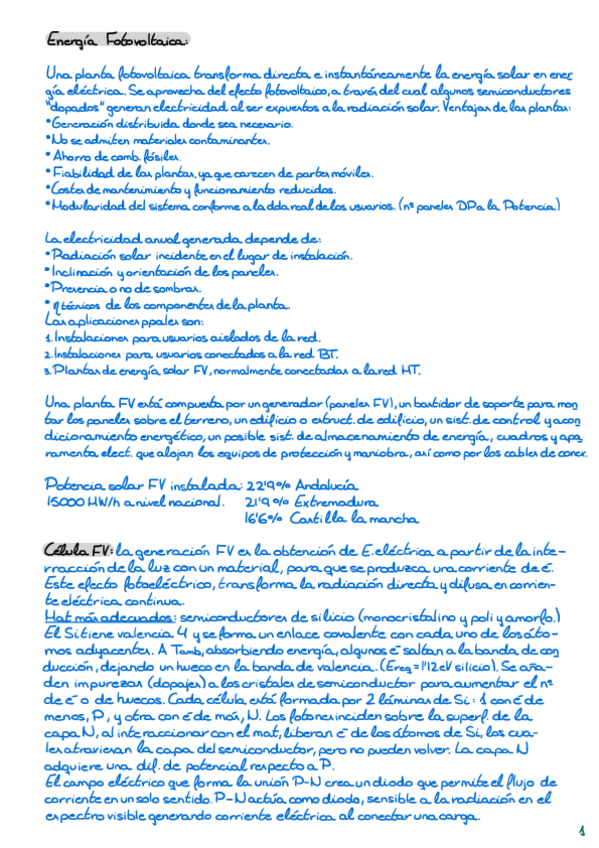 Energía Fotovoltaica:
Una planta fotovoltaica transforma directa e instantáneamente la energía solar en ener
gía eléctrica. Se aprovecha del efecto fotovoltaico, a través del cual algunos semiconductores
"dopados" generan electricidad al ser expuestos a la radiación solar. Ventajas de las plantas:
• Generación distribuida donde sea necesario.
• No se admiten materiales contaminantes.
• Ahorro de comb. fósiles.
• Fiabilidad de las plantas, ya que carecen de partes móviles.
• Costes de mantenimiento y funcionamiento reducidos.
• Modularidad del sistema conforme a la dda real de los usuarios. (nº paneles DPa la Potencia)
La electricidad anual generada depende de:
• Radiación solar incidente en el lugar de instalación.
• Inclinación y orientación de los paneles.
• Presencia o no de sombras.
• η técnicos de los componentes de la planta.
Las aplicaciones ppales son:
1. Instalaciones para usuarios aislados de la red.
2. Instalaciones para usuarios conectados a la red BT.
3. Plantas de energía solar FV, normalmente conectadas a la red MT.
Una planta FV está compuesta por un generador (paneles FV), un bastidor de soporte para mon
tar los paneles sobre el terreno, un edificio o estruct. de edificio, un sist. de control y acon
dicionamiento energético, un posible sist. de almacenamiento de energía, cuadros y apa
ramenta elect. que alojan los equipos de protección y maniobra, así como por los cables de conex.
Potencia solar FV instalada: 22'9% Andalucía
15000 MW/h a nivel nacional. 21'9% Extremadura
16'6% Castilla la mancha
Célula FV: la generación FV es la obtención de E. eléctrica a partir de la inte-
rracción de la luz con un material, para que se produzca una corriente de é.
Este efecto fotoeléctrico, transforma la radiación directa y difusa en corrien-
te eléctrica continua.
Mat más adecuados: semiconductores de silicio (monocristalino y poli y amorfo.)
El Si tiene valencia 4 y se forma un enlace covalente con cada uno de los áto-
mos adyacentes. A Tamb, absorbiendo energía, algunos é saltan a la banda de con
ducción, dejando un hueco en la banda de valencia. (Ereq = 1'12 eV silicio). Se aña-
den impurezas (dopajes) a los cristales de semiconductor para aumentar el nº
de é o de huecos. Cada célula está formada por 2 láminas de Si: 1 con é de
menos, P, y otra con é de más, N. Los fotones inciden sobre la superf. de la
capa N, al interaccionar con el mat, liberan é de los átomos de Si, los cua-
les atraviesan la capa del semiconductor, pero no pueden volver. La capa N
adquiere una dif. de potencial respecto a P.
El campo eléctrico que forma la unión P-N crea un diodo que permite el flujo de
corriente en un solo sentido. P-N actúa como diodo, sensible a la radiación en el
espectro visible generando corriente eléctrica al conectar una carga.
1